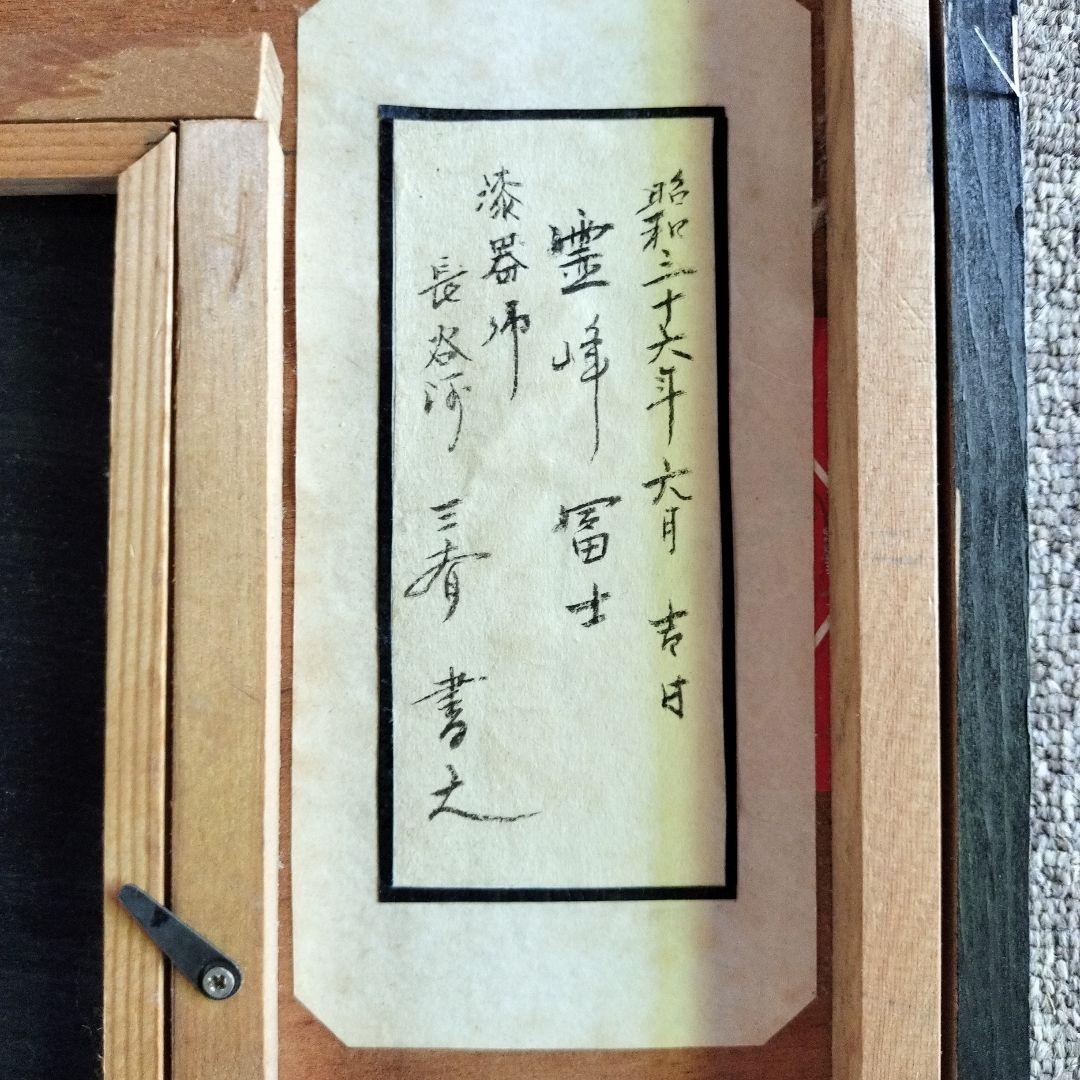 昭和三十六年 六月 吉日
霊峰 冨士
漆器師
長谷河 三春 書